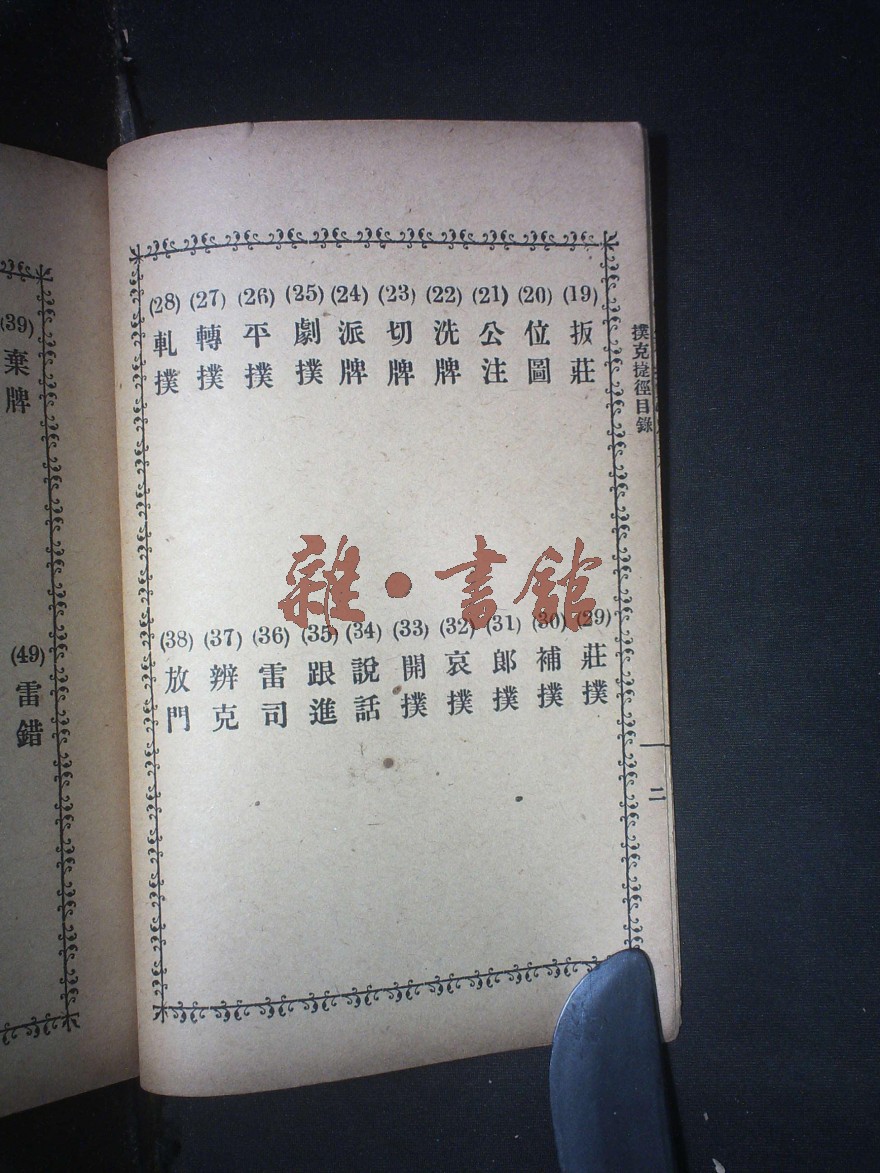 撲克捷徑目錄
(19) 扳莊
(20) 位圖
(21) 公注
(22) 洗牌
(23) 切牌
(24) 派牌
(25) 劇撲
(26) 平撲
(27) 轉撲
(28) 軋撲
(29) 莊撲
(30) 補撲
(31) 郎撲
(32) 哀撲
(33) 開撲
(34) 說話
(35) 跟進
(36) 雷司
(37) 辨克
(38) 放門
二
(39) 棄牌
(49) 雷錯
雜·書館